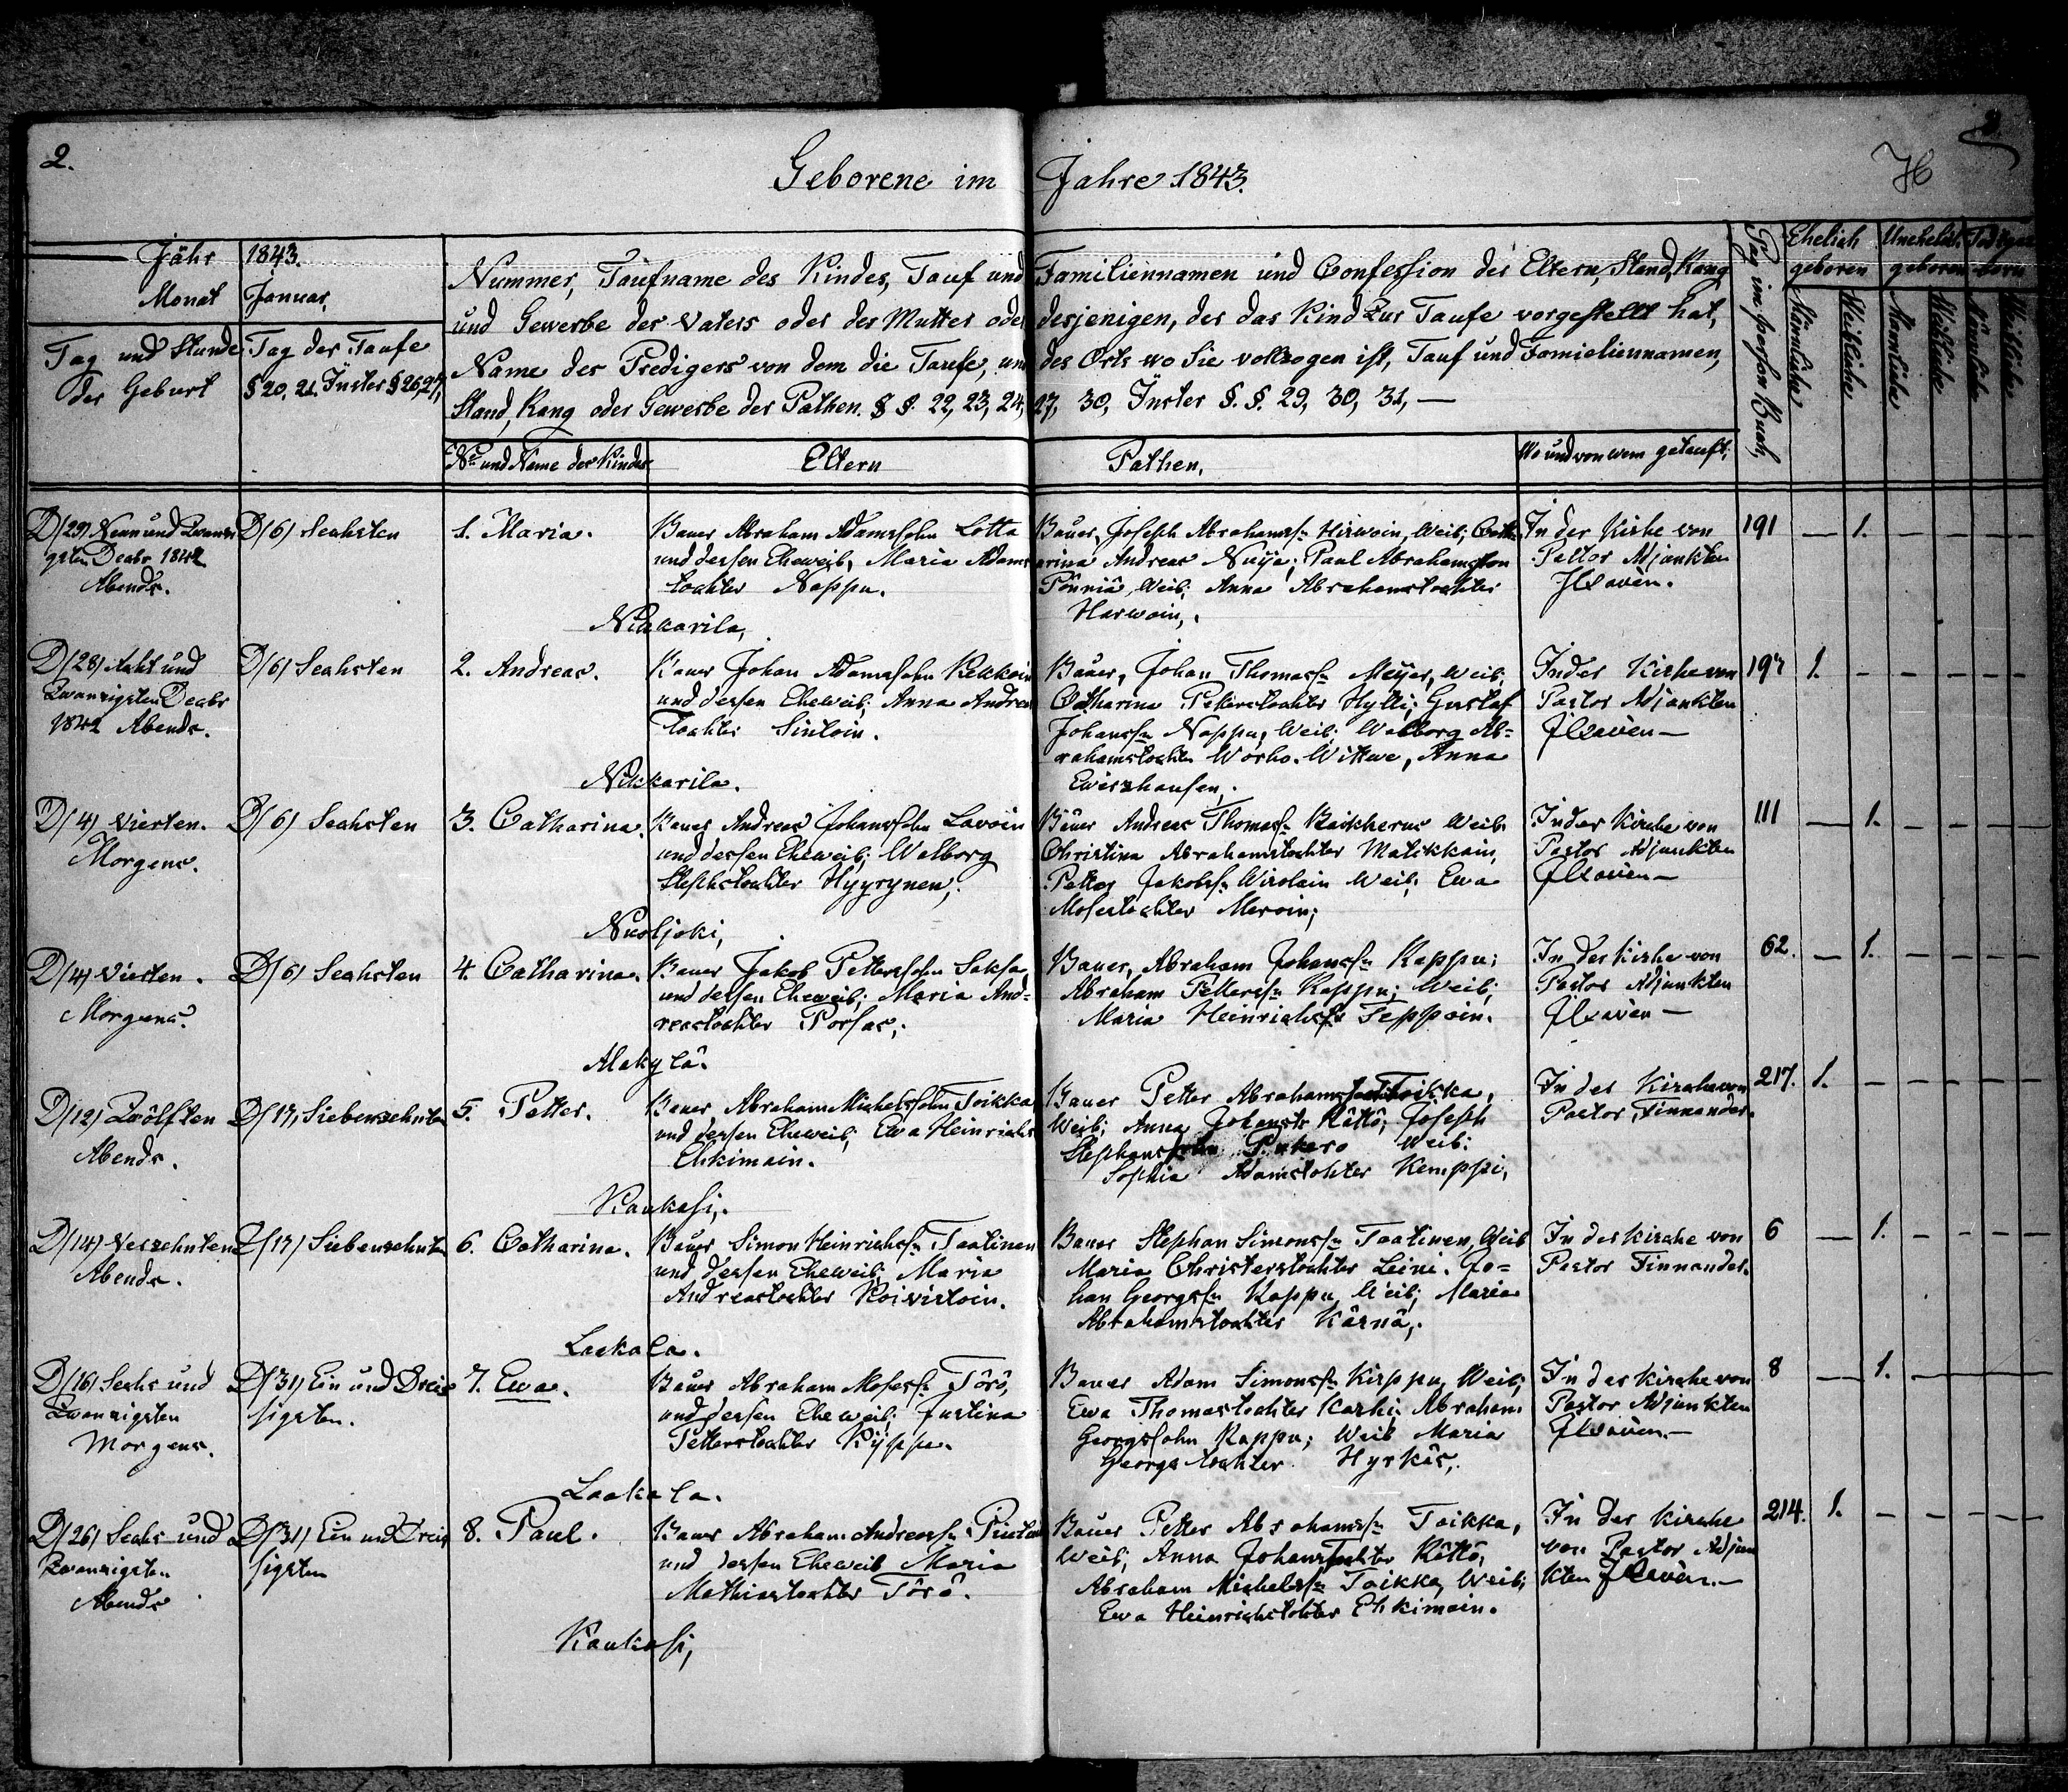 2.
Geborene im Jahre 1843.
Jähr 1843.
Monat Januar,
Tag und Stunde der Geburt
Tag der Taufe
§ 20, 21. Inster § 26, 27,
Nummer, Taufname des Kindes, Tauf und Familiennamen und Confession der Eltern, Stand, Rang
und Gewerbe der Vaters oder der Mutter oder desjenigen, der das Kind Zur Taufe vorgestellt hat,
Name des Predigers von dem die Taufe, und des Orts wo Sie vollzogen ist, Tauf und Famieliennamen,
Stand, Rang oder Gewerbe der Pathen. § §. 22, 23, 24, 27, 30, Inster §. §. 29, 30, 31, —
No und Name der Kinder
Eltern
Pathen,
Wo und von wem getauft;
Pag im person Buch,
Ehelich geboren
Unehelich geboren
Männliche
Weibliche
Mänliche
Weibliche
Weibliche
D/29/ Neun und Zwanzi
gsten Decbr 1842
Abends.
D/6/ Sechsten
1. Maria.
Bauer Abraham Adamssohn Lotta
und dessen Eheweib, Maria Adams
tochter Nappu.
Bauer, Joseph Abrahamss. Hirwoin, Weib; Cath
arina Andreas Nuija; Paul Abrahamsson
Pönniä, Weib; Anna Abrahamstochter
Harwoin,.
In der Kirhe von
Pastor Adjunkten
191 — 1.
Nukkarila,
D/28/ Acht und
Zwanzigsten Decbr
1842 Abends.
D/6/ Sechsten
2. Andreas.
Bauer Johan Adamssohn Kekkoin
und dessen Eheweib; Anna Andreas
Tochter Sintoin.
Bauer, Johan Thomass. Meijer, Weib;
Catharina Petterstochter Hytti; Gustaf
Johanss. Nappu, Weib; Walborg Ab=
rahamstochter Worho. Wittwe, Anna
In der Kirhe von
Pastor Adjunkten
1. - - - - -
Nukkarila.
D/4/ Vierten.
Morgens.
D/6/ Sechsten
3. Catharina.
Bauer Andreas Johanssohn Lavoin
und dessen Eheweib; Walborg
Stephstochter Hyyrynen;
Bauer Andreas Thomass. Weib
Christina Abrahamstochter Matikkain,
Petter Jakobss. Wirolain Weib; Ewa
Mosestochter Meroin;
In der Kirche von
Pastor Adjunkten
111 — 1. - - - -
Nuoljoki,
D/4/ Vierten.
Morgens.
D/6/ Sechsten
4. Catharina.
Bauer Jakob Petterssohn Saksa
und dessen Eheweib; Maria And=
reastochter Porsas;
Bauer, Abraham Johanss. Kappu;
Abraham Petterss. Kappu; Weib;
Maria Heinrichs Teppoin.
In der Kirhe von
Pastor Adjunkten
62. — 1. - - - -
Alakylä.
D/12/ Zwölften
Abends.
D/17/ Siebenzehnten
5. Petter.
Bauer Abraham Michelssohn Toikka
und dessen Eheweib; Ewa Heinrichs
Ehkimain.
Bauer Petter Abrahams Toikka,
Weib; Anna Johanstr Rättö; Joseph
Stephanssohn Weib:
Sophia Adamstohter Kemppi,
In der Kirche von
Pastor Finnander.
217. 1. - - - - -
Kaukosi,.
D/14/ Verzehnten
Abends.
D/17/ Siebenzehnten
6. Catharina.
Bauer Simon Heinrichss. Taatinen
und dessen Eheweib; Maria
Andreastochter Koivistoin.
Bauer Stephan Simonss. Taatinen, Weib
Maria Christerstochter Leini. Jo=
han Georgss. Kappu, Weib; Maria
Abrahamstochter Kärnä,.
In der Kirche von
Pastor Finnander.
6 — 1. - - - -
Laakala.
D/26/ Sechs und
Zwanzigsten
Morgens.
D/31/ Ein und Dreis
sigsten.
7. Ewa.
Bauer Abraham Mosess. Törö,
und dessen Eheweib; Justina
Petterstochter Kÿppe.
Bauer Adam Simonss. Kirppu, Weib;
Ewa Thomastochter Karhi; Abraham
Georgssohn Kappu; Weib Maria
Georgs tochter Hyrkäs,.
In der Kirche von
Pastor Adjunkten
8 — 1. - - - -
Laakala.
D/26/ Sechs und
Zwanzigsten
Abends
D/31/ Ein und Dreis
sigsten
8. Paul.
Bauer Abraham Andreass.
und dessen Eheweib Maria
Mathiastochter Törö.
Bauer Petter Abrahamss. Toikka,
Weib; Anna Johanstochter Rättö;
Abraham Michelss. Toikka, Weib;
Ewa Heinrichstohter Ehkimain.
In der Kirche
von Pastor Adjun
kten
214. 1. - - - - -
Kaukosi,